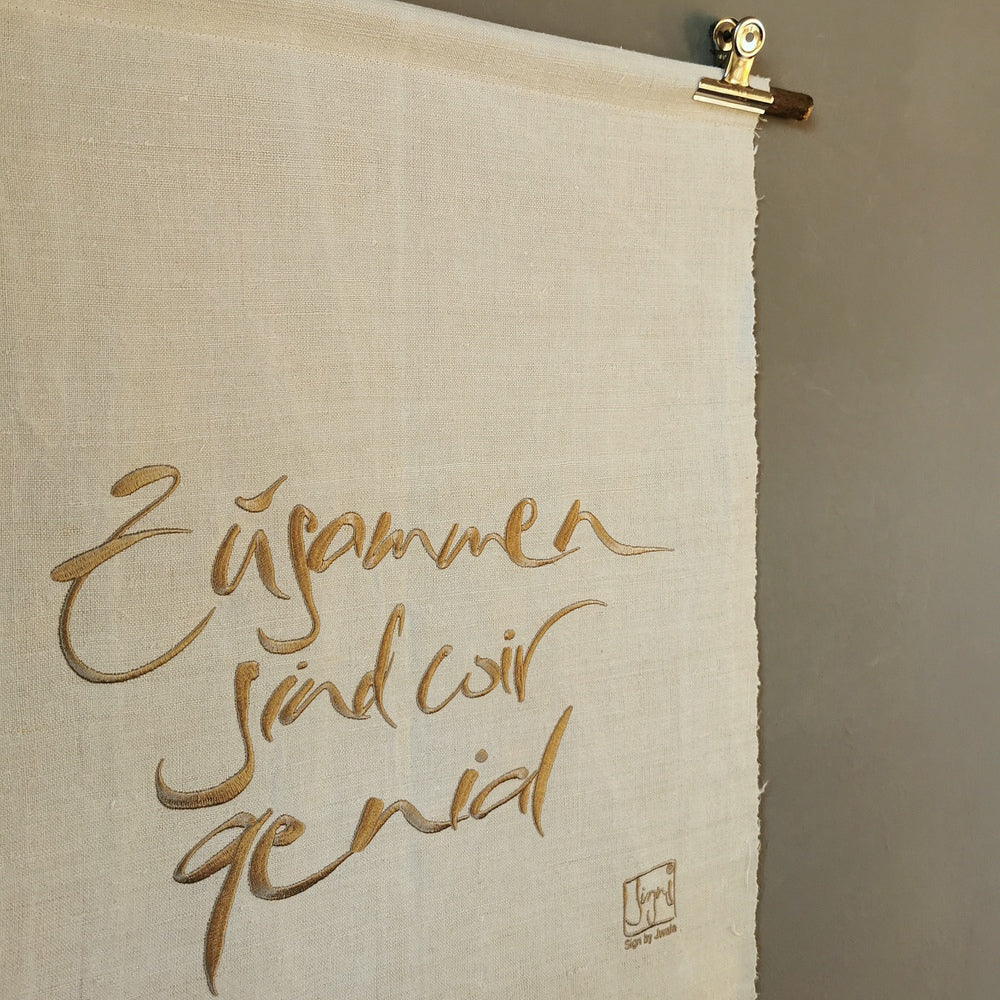 Zusammen
sind wir
genial
Sign by Jwala